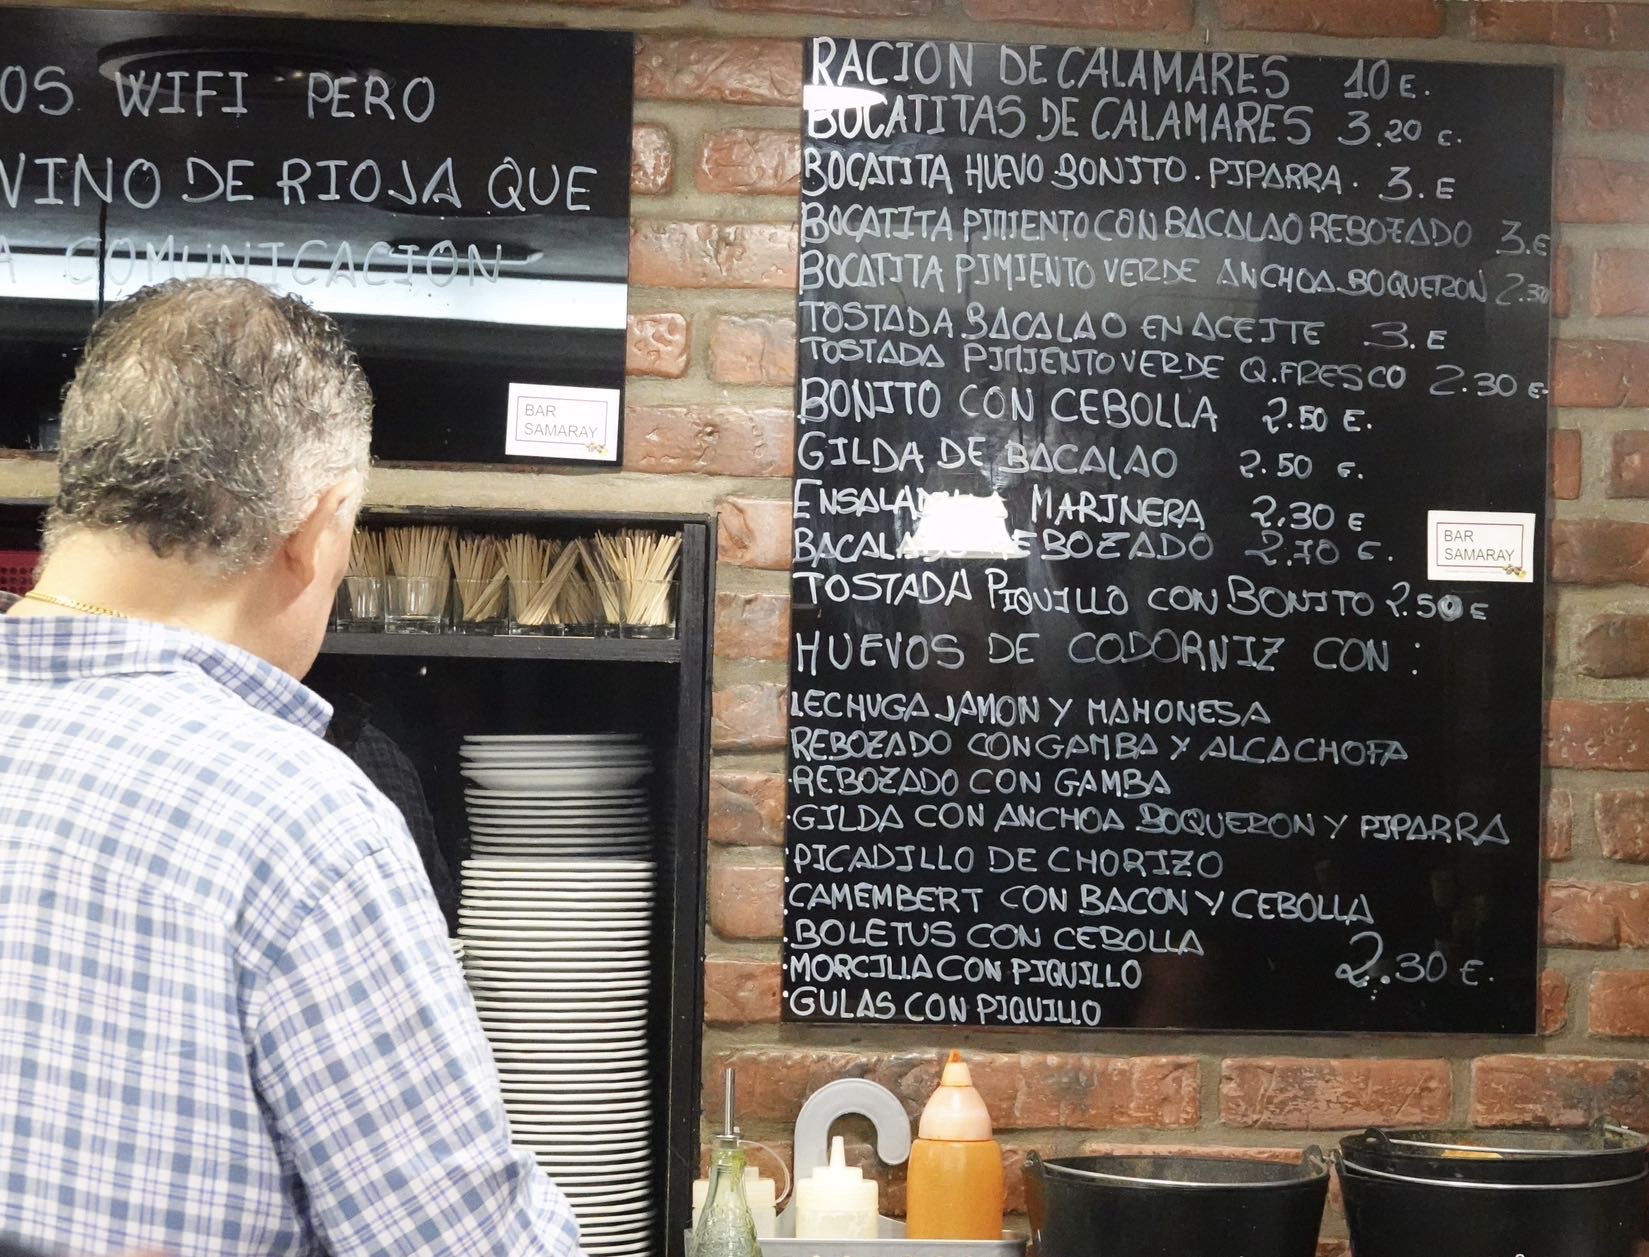 OS WIFI PERO
VINO DE RIOJA QUE
A COMUNICACION
BAR
SAMARAY
RACION DE CALAMARES 10 E.
BOCATITAS DE CALAMARES 3.20 E.
BOCATITA HUEVO BONITO. PIPARRA. 3. E
BOCATITA PIMIENTO CON BACALAO REBOZADO 3. E
BOCATITA PIMIENTO VERDE ANCHOA BOQUERON 2.30
TOSTADA BACALAO EN ACEITE 3. E
TOSTADA PIMIENTO VERDE Q.FRESCO 2.30 E
BONITO CON CEBOLLA 2.50 E.
GILDA DE BACALAO 2.50 E.
MARINERA 2.30 E
REBOZADO 2.70 E.
TOSTADA PIQUILLO CON BONITO 2.50 E
HUEVOS DE CODORNIZ CON :
LECHUGA JAMON Y MAHONESA
REBOZADO CON GAMBA Y ALCACHOFA
·REBOZADO CON GAMBA
·GILDA CON ANCHOA BOQUERON Y PIPARRA
·PICADILLO DE CHORIZO
·CAMEMBERT CON BACON Y CEBOLLA
·BOLETUS CON CEBOLLA
·MORCILLA CON PIQUILLO 2.30 E.
·GULAS CON PIQUILLO
BAR
SAMARAY